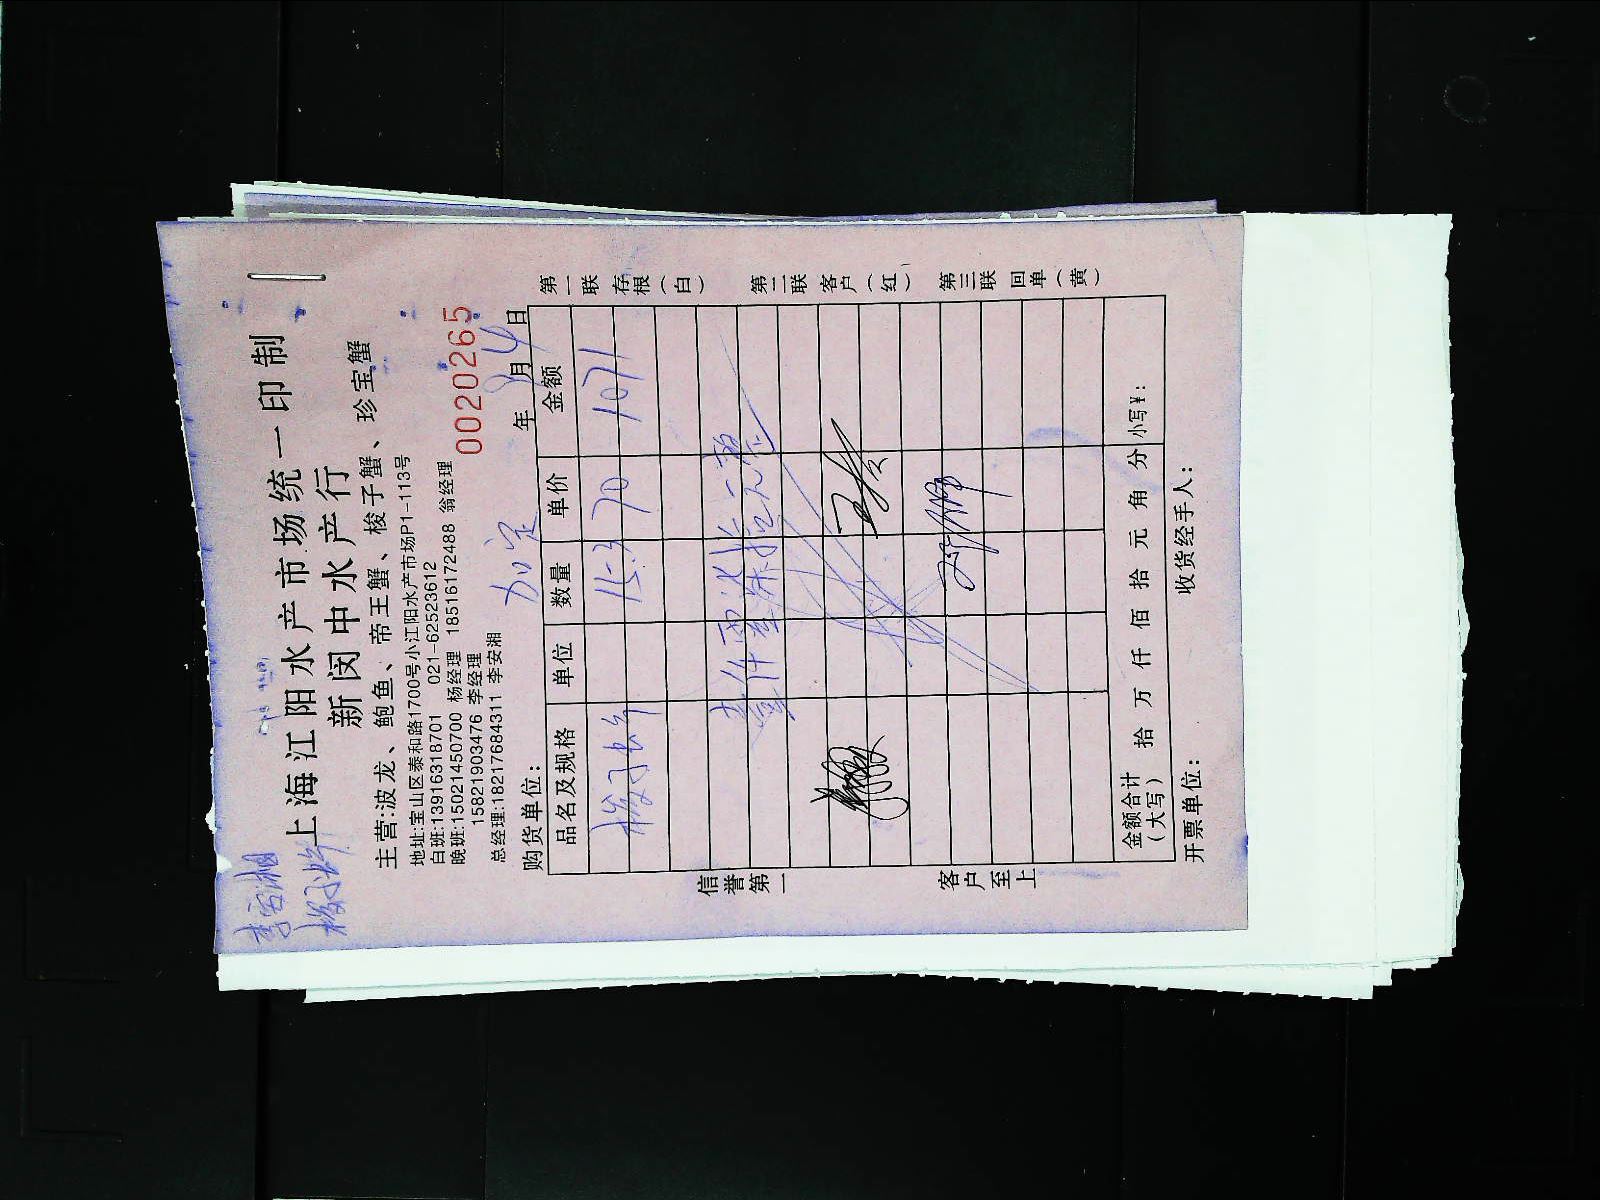 李安湘
梭子蟹
上海江阳水产市场统一印制
新闵中水产行
主营:波龙、鲍鱼、帝王蟹、梭子蟹、珍宝蟹
地址:宝山区泰和路1700号小江阳水产市场P1-113号
白班:13916318701 021-62523612
晚班:15021450700 杨经理 18516172488 翁经理
15821903476 李经理
总经理:18217684311 李安湘
0020265
购货单位: 加定 年 月 4 日
品名及规格 单位 数量 单价 金额
梭子蟹 15.3 70 1071
金额合计(大写) 拾 万 仟 佰 拾 元 角 分 小写¥:
开票单位: 收货经手人:
信誉第一
客户至上
第一联 存根(白)
第二联 客户(红)
第三联 回单(黄)